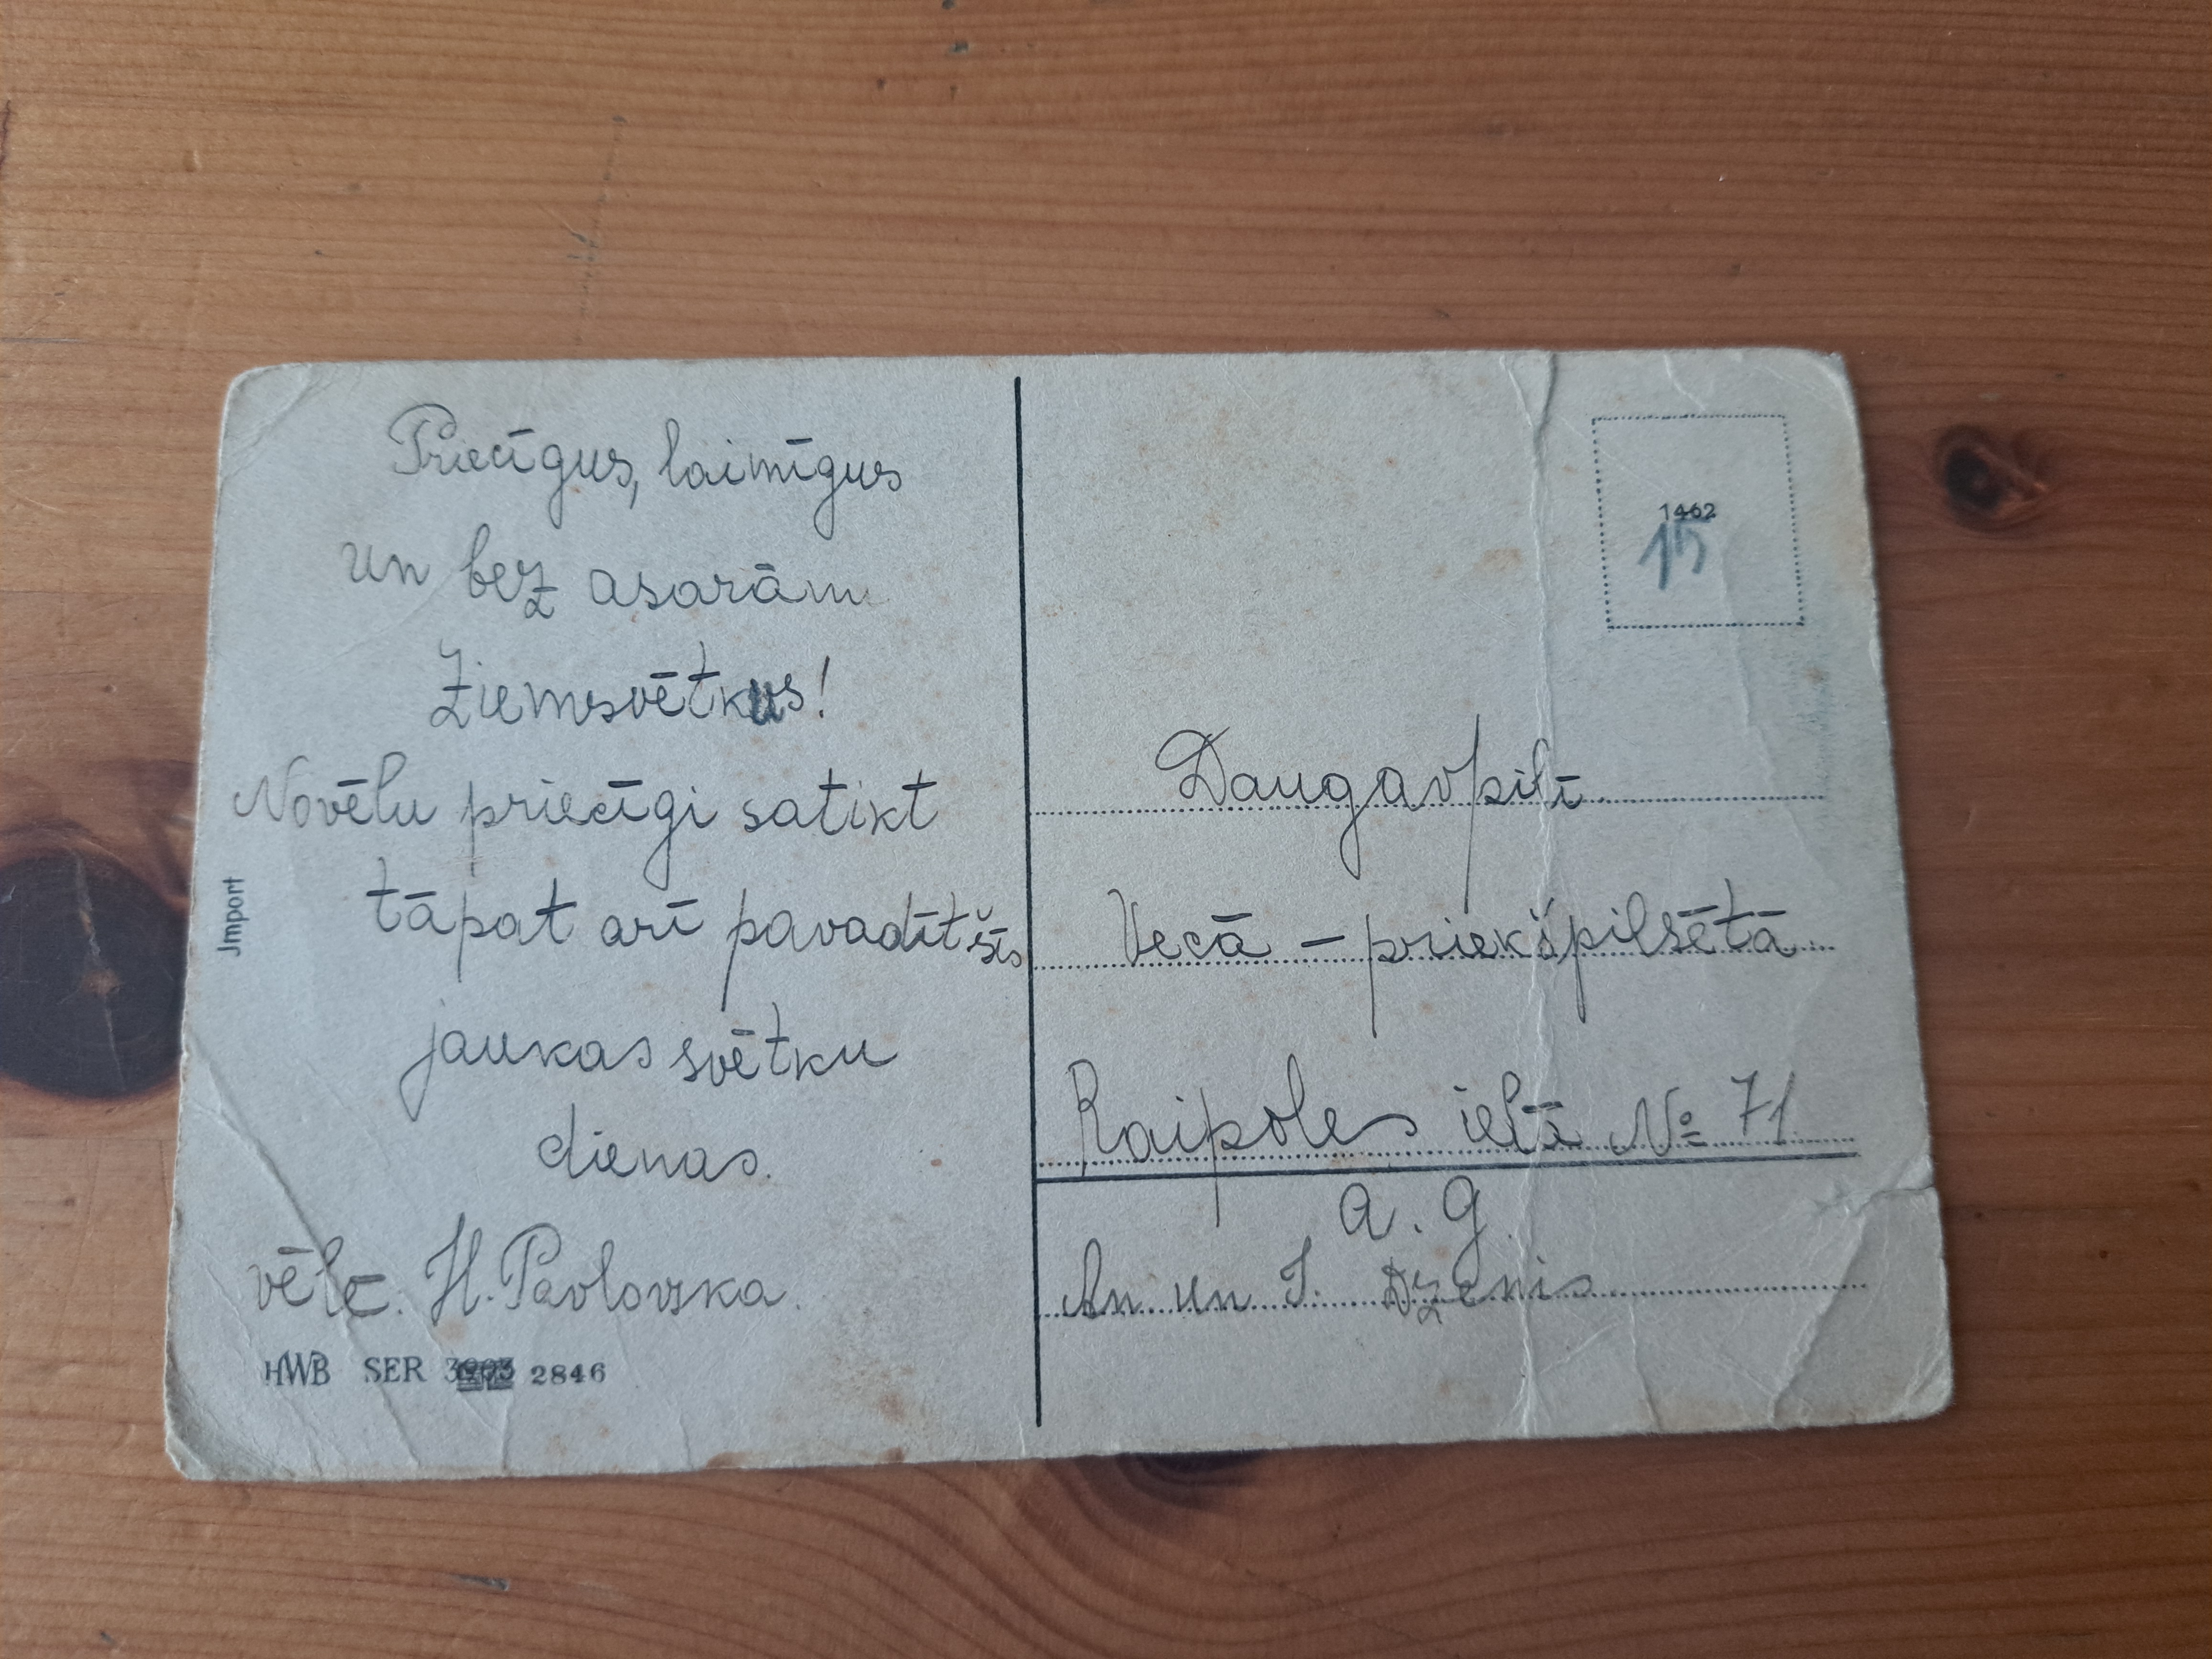 Priecīgus, laimīgus
un bez asarām
Ziemsvētkus!
Novēlu priecīgi satikt
tāpat arī pavadīt šīs
jaukas svētku
dienas.
vēlē. H. Pavlovska.
Jmport
HWB SER 2846
1462
15
Daugavpilī
Vecā – priekšpilsētā
Raipoles ielā № 71
a. g.
An un J. Dzenis